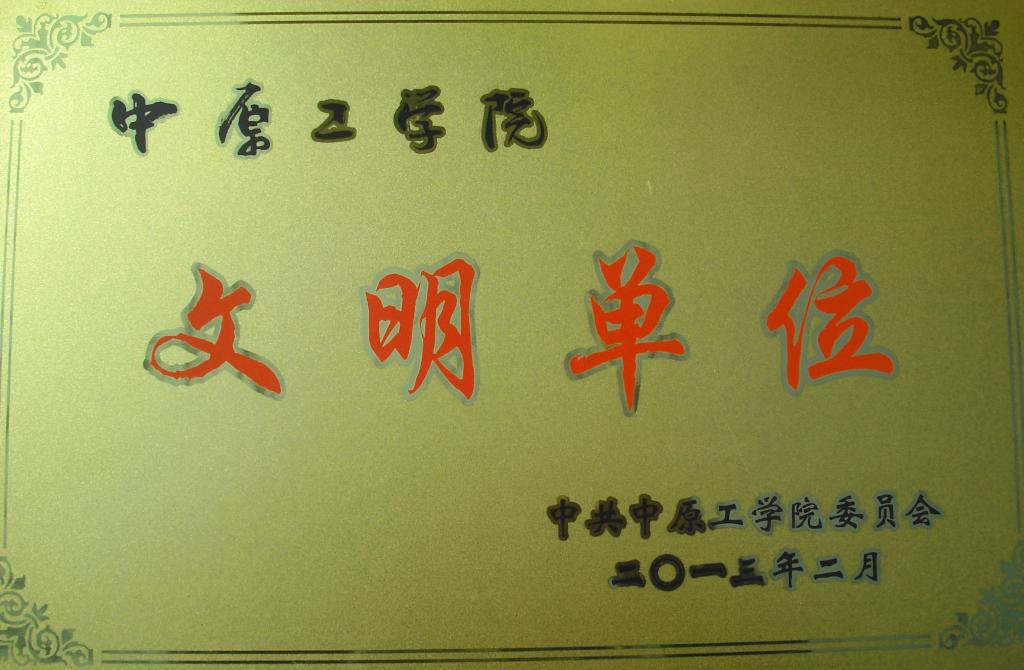 中原工学院
文明单位
中共中原工学院委员会
二〇一三年二月